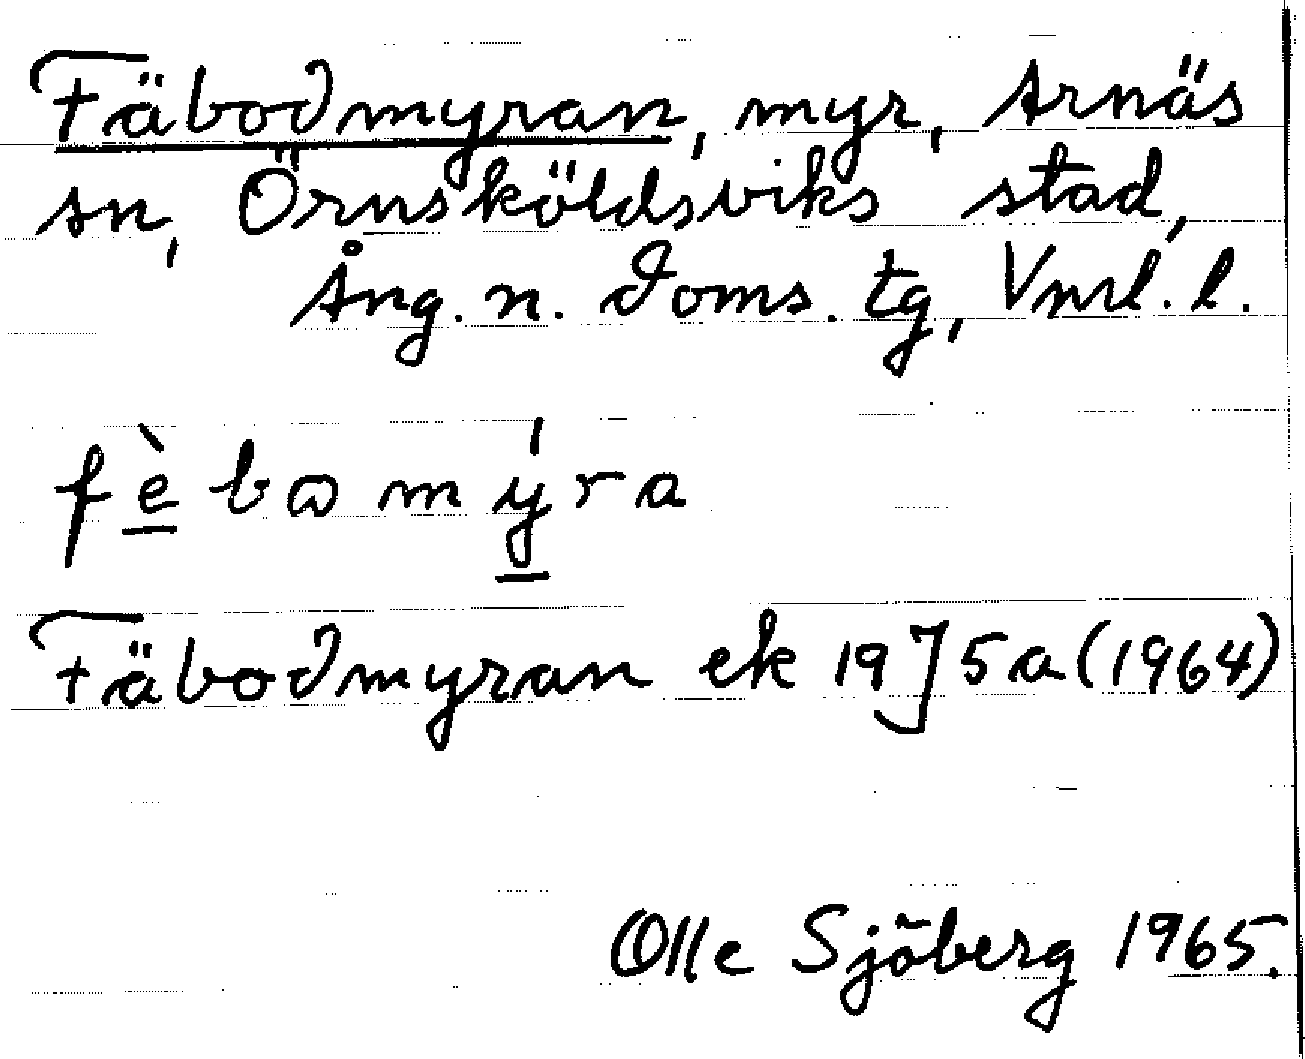 Fäbodmyran, myr, Arnäs
sn, Örnsköldsviks stad,
Ång. n. doms. tg, Vnrl. l.
fè̲ bɷ m ý̲ r a
Fäbodmyran ek 19 J 5 a (1964)
Olle Sjöberg 1965.